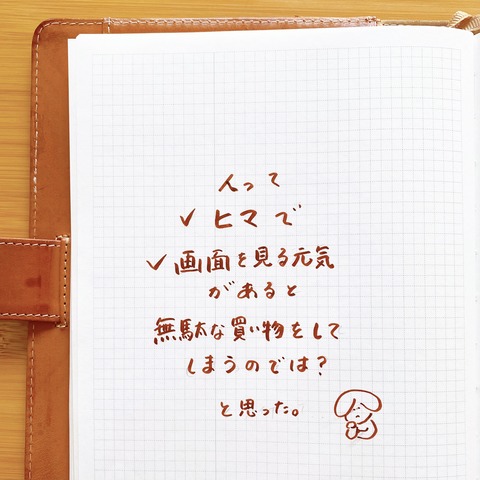 人って
✓ ヒマで
✓ 画面を見る元気
があると
無駄な買い物をして
しまうのでは?
と思った。